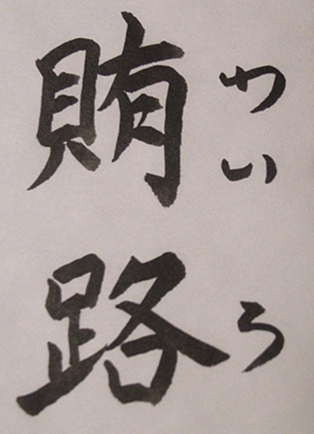 賄路
わいろ